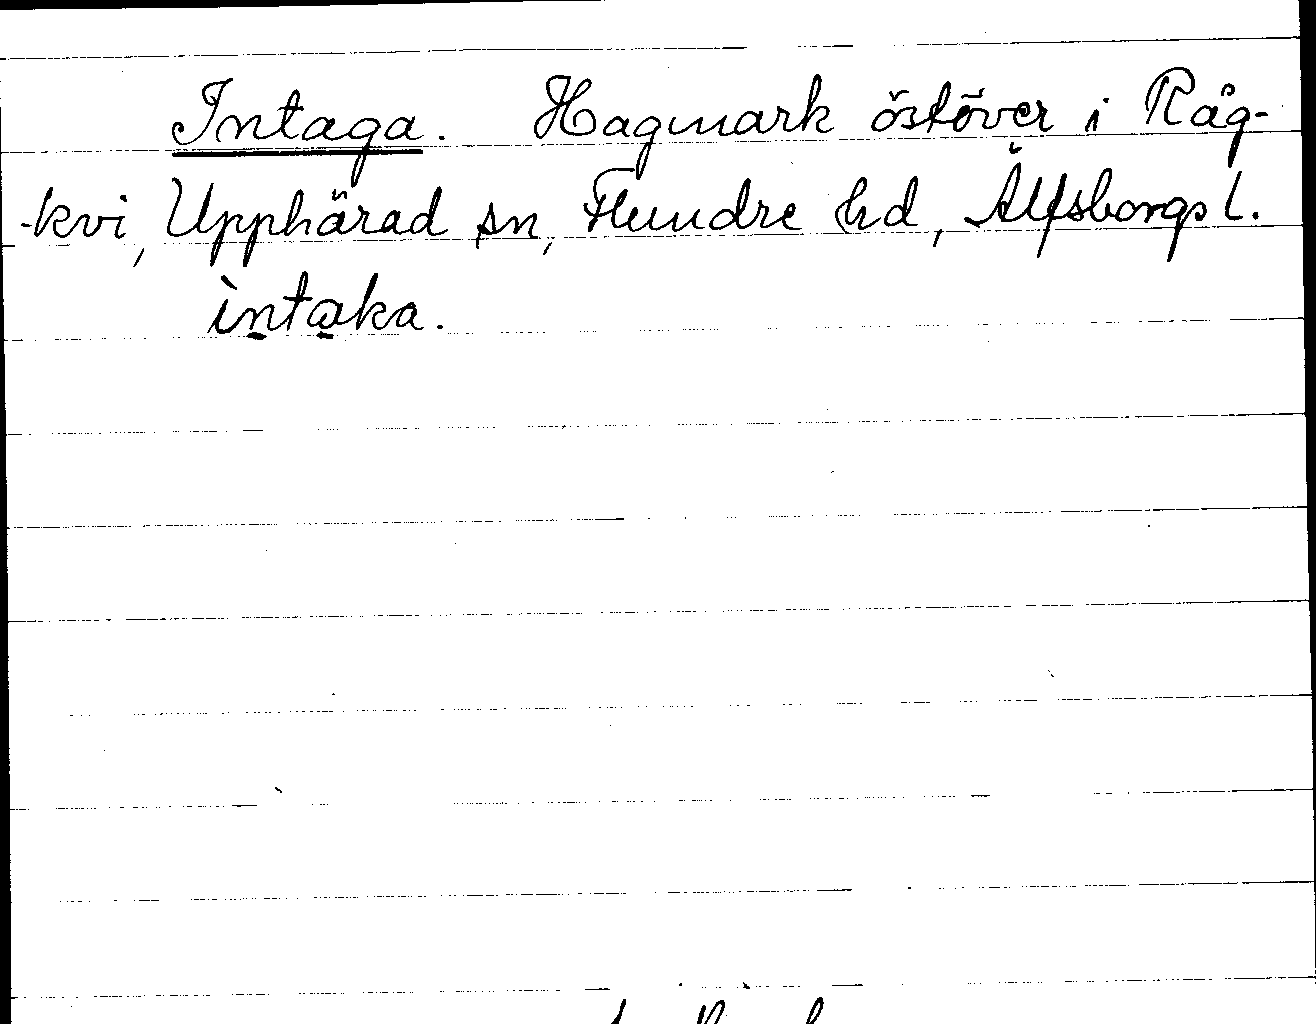 Intaga. Hagmark östöver i Råg-
-kvi, Upphärad sn, Flundre hd, Älfsborgs l.
ìntaka.